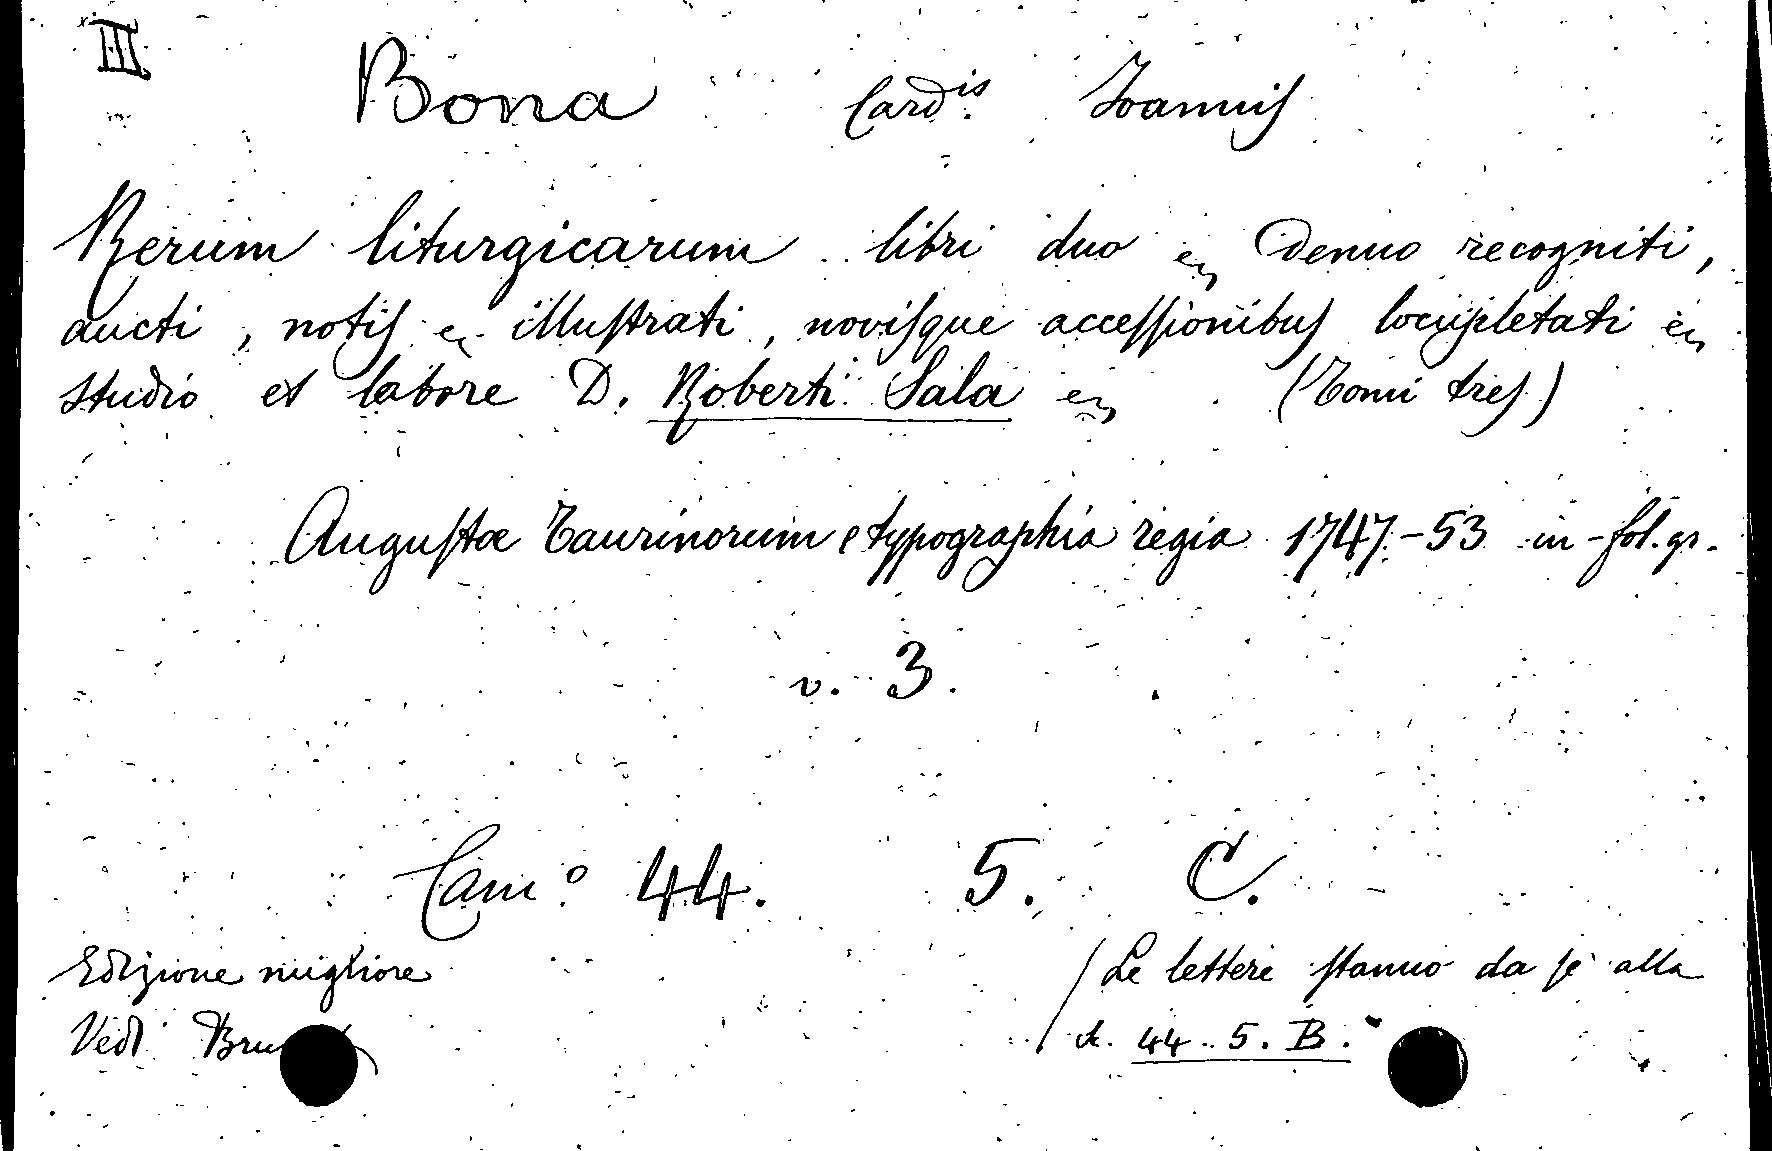 III
Bona Card.is Ioannis
Rerum liturgicarum libri duo denuo recogniti,
aucti, notis illustrati, novisque accessionibus locupletati
studio et labore D. Roberti Sala (Tomi tres)
Augustæ Taurinorum e typographia regia 1747-53 in-fol. gr.
v. 3.
Cam.o 44. 5. C.
Edizione migliore
(Le lettere stanno da sè alla
Vedi
44. 5. B.